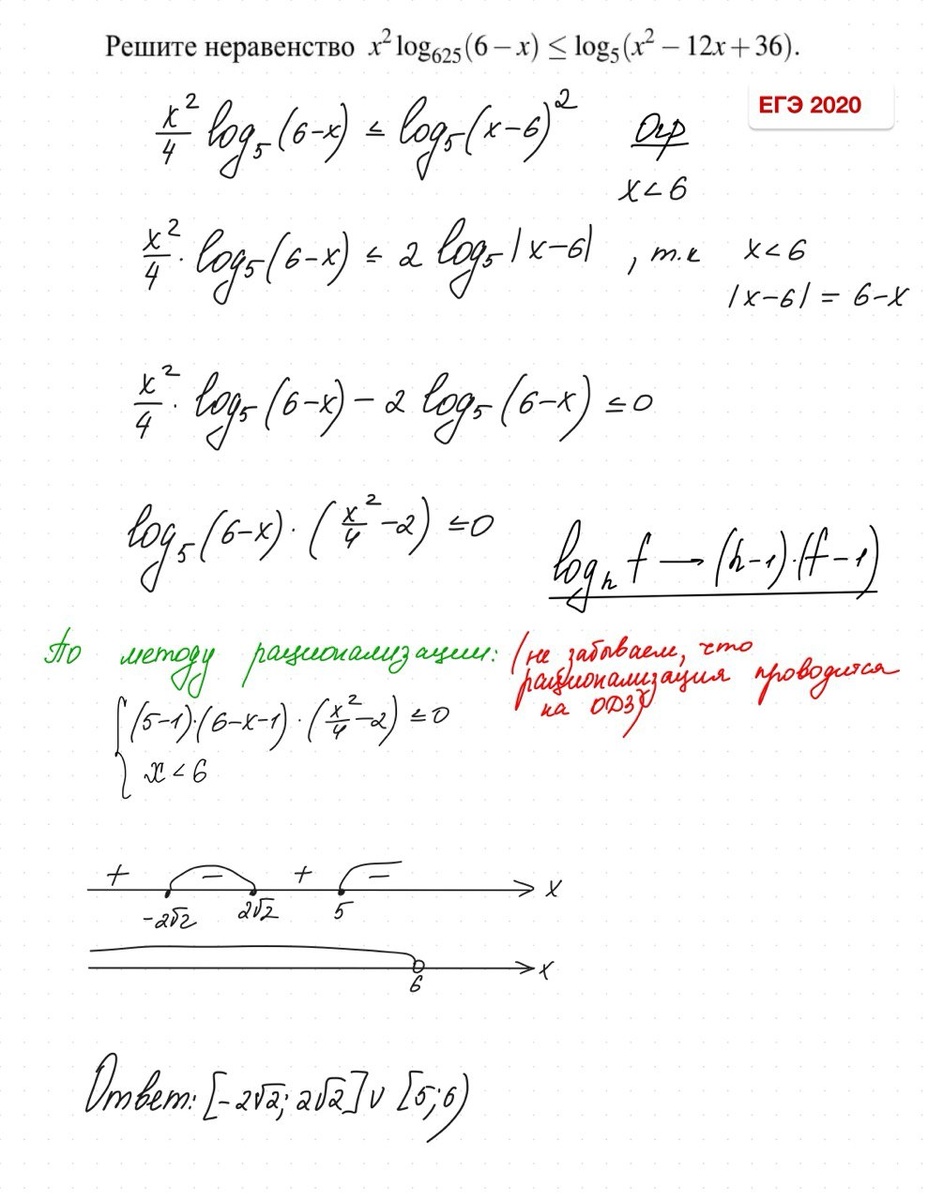 Решите неравенство x² log₆₂₅(6 − x) ≤ log₅(x² − 12x + 36).
ЕГЭ 2020
x²/4 log₅(6-x) ≤ log₅(x-6)²
Огр
x<6
x²/4 · log₅(6-x) ≤ 2 log₅|x-6| , т.к x<6
|x-6| = 6-x
x²/4 · log₅(6-x) - 2 log₅(6-x) ≤ 0
log₅(6-x) · (x²/4 - 2) ≤ 0
logₕ f → (h-1)·(f-1)
По методу рационализации: (не забываем, что
рационализация проводится
на ОДЗ)
{ (5-1)·(6-x-1) · (x²/4 - 2) ≤ 0
x < 6
+ − + − x
-2√2 2√2 5
x
6
Ответ: [-2√2; 2√2] ∪ [5;6)